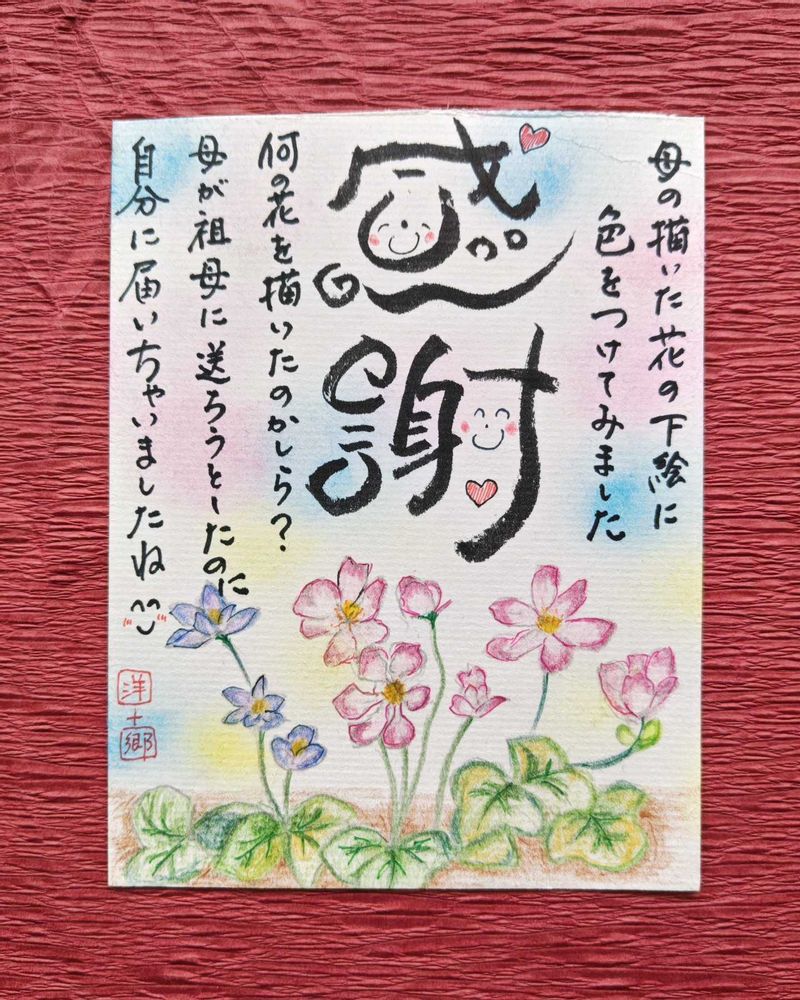 母の描いた花の下絵に
色をつけてみました
感謝
何の花を描いたのかしら？
母が祖母に送ろうとしたのに
自分に届いちゃいましたね
洋
+
郷